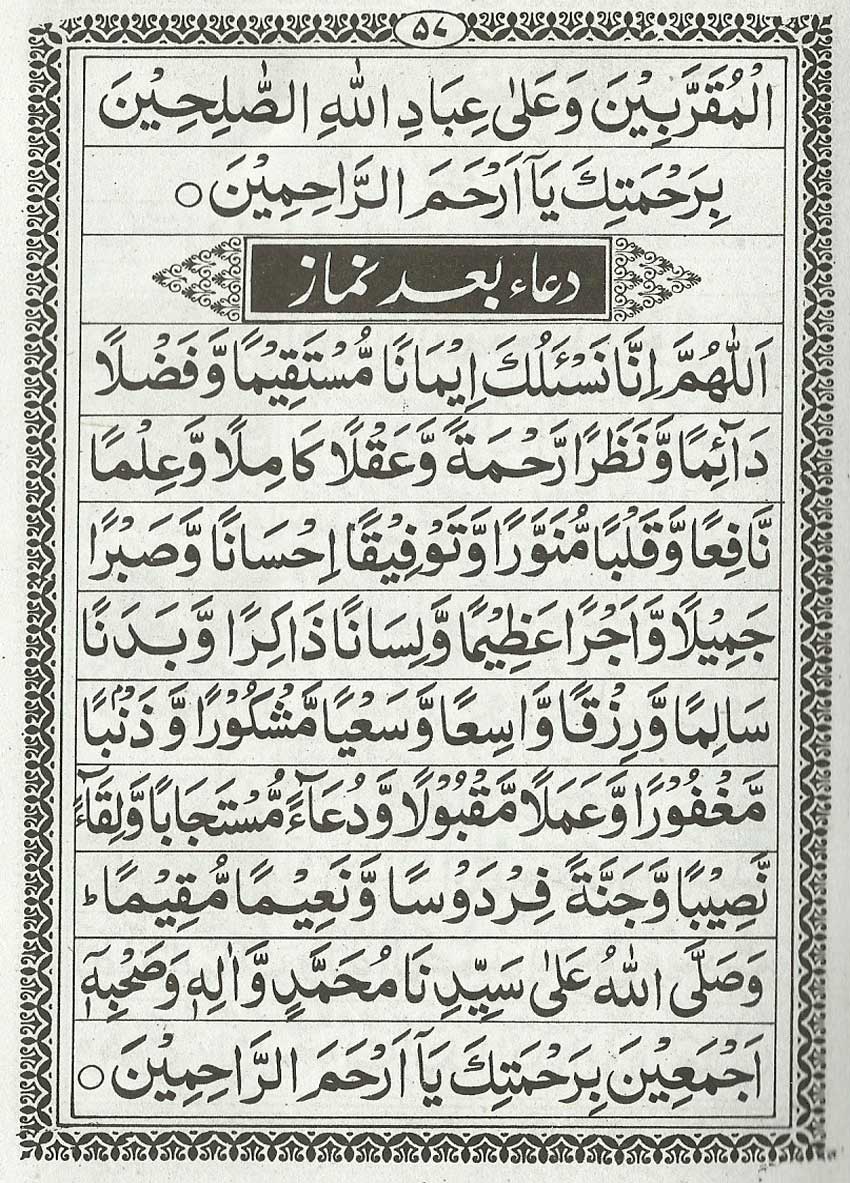 ۵۷
الْمُقَرَّبِيْنَ وَعَلٰى عِبَادِ اللّٰهِ الصّٰلِحِيْنَ
بِرَحْمَتِكَ يَآ اَرْحَمَ الرَّاحِمِيْنَ ○
دعاء بعد نماز
اَللّٰهُمَّ اِنَّا نَسْئَلُكَ اِيْمَانًا مُّسْتَقِيْمًا وَّفَضْلًا
دَآئِمًا وَّنَظَرًا رَّحْمَةً وَّعَقْلًا كَامِلًا وَّعِلْمًا
نَّافِعًا وَّقَلْبًا مُّنَوَّرًا وَّتَوْفِيْقًا اِحْسَانًا وَّصَبْرًا
جَمِيْلًا وَّاَجْرًا عَظِيْمًا وَّلِسَانًا ذَاكِرًا وَّبَدَنًا
سَالِمًا وَّرِزْقًا وَّاسِعًا وَّسَعْيًا مَّشْكُوْرًا وَّذَنْۢبًا
مَّغْفُوْرًا وَّعَمَلًا مَّقْبُوْلًا وَّدُعَآءً مُّسْتَجَابًا وَّلِقَآءً
نَّصِيْبًا وَّجَنَّةً فِرْدَوْسًا وَّنَعِيْمًا مُّقِيْمًا ؕ
وَصَلَّى اللّٰهُ عَلٰى سَيِّدِنَا مُحَمَّدٍ وَّاٰلِهٖ وَصَحْبِهٖٓ
اَجْمَعِيْنَ بِرَحْمَتِكَ يَآ اَرْحَمَ الرَّاحِمِيْنَ ○